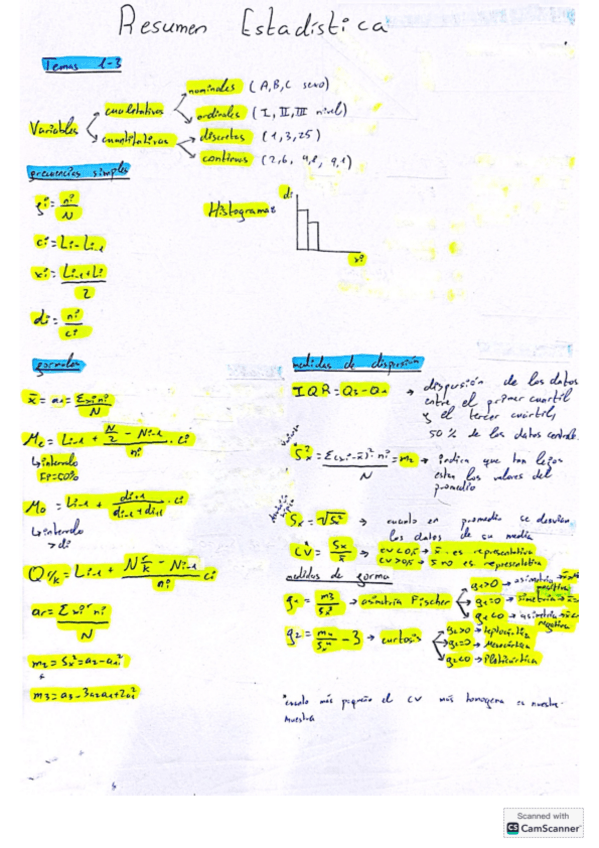 Resumen Estadística
Temas 1-3
Variables
cualitativas
nominales (A,B,C sexo)
ordinales (I, II, III nivel)
cuantitativas
discretas (1,3,25)
continuas (2,6, 4,8, 9,1)
frecuencias simples
fi = ni/N
ci = Li - Li-1
xi = Li-1+Li/2
di = ni/ci
Histogramas
di
xi
formulas
x̄ = a1 = Σxi ni/N
Me = Li-1 + N/2 - Ni-1/ni · ci
↳ intervalo
Mo = Li-1 + di+1/di-1+di+1 · ci
↳ intervalo
> di
Q r/k = Li-1 + N r/k - Ni-1/ni ci
ar = Σxi^r ni/N
m2 = Sx² = a2 - a1²
m3 = a3 - 3a2a1 + 2a1³
medidas de dispersión
IQR = Q3 - Q1 → dispersión de los datos
entre el primer cuartil
y el tercer cuartil,
50 % de los datos central
Sx² = Σ(xi-x̄)² ni/N = m2 → indica que tan lejos
estan los valores del
promedio
Sx = √Sx² → cuanto en promedio se desvian
los datos de su media
CV = Sx/x̄ → CV<0,5 → x̄ es representativa
CV>0,5 → no es representativa
medidas de forma
g1 = m3/Sx³ → asimetria Fischer
g1>0 → asimetria positiva
g1=0 → simetria
g1<0 → asimetria negativa
g2 = m4/Sx⁴ - 3 → curtosis
g2>0 → leptocúrtica
g2=0 → Mesocúrtica
g2<0 → Platicúrtica
*cuanto más pequeño el CV más homogenea es nuestra
muestra
Scanned with
CS CamScanner